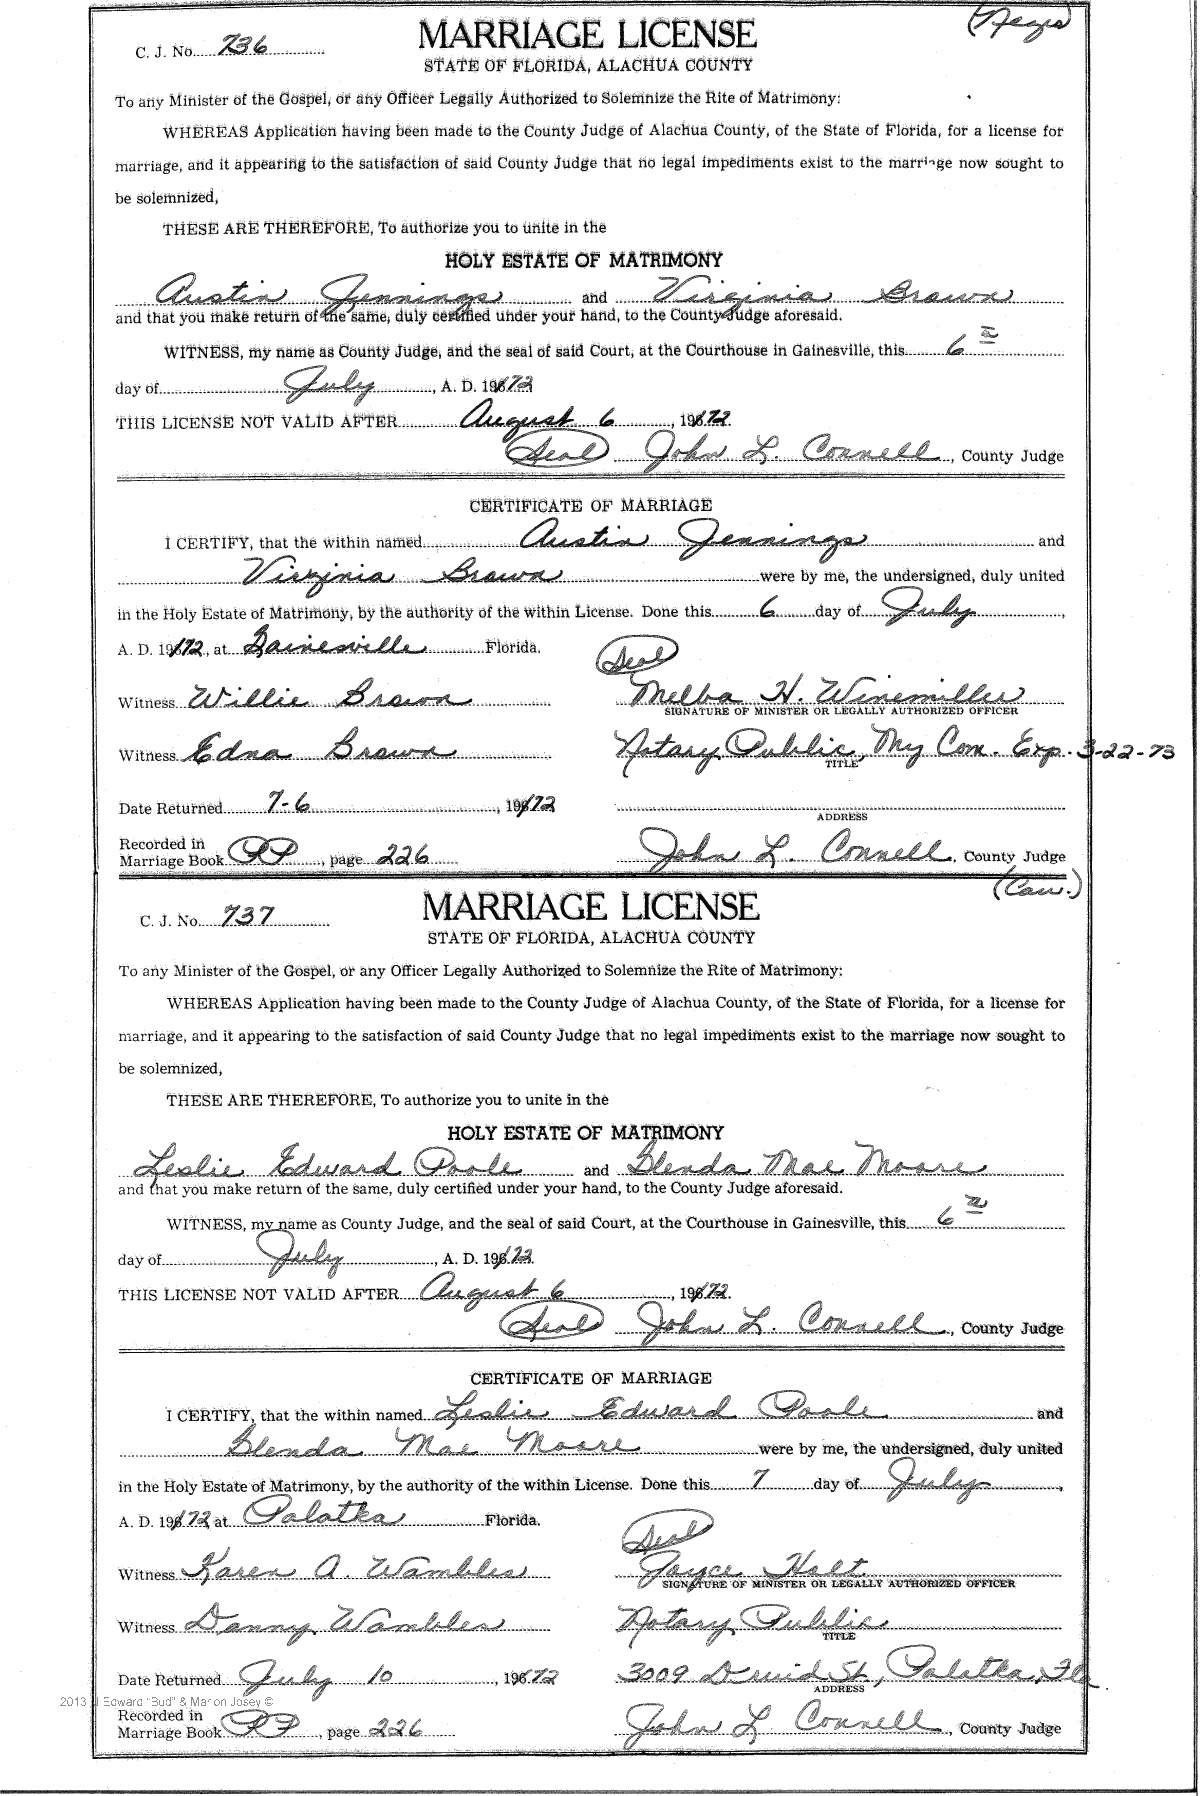 (Negro)
C. J. No. 736
MARRIAGE LICENSE
STATE OF FLORIDA, ALACHUA COUNTY
To any Minister of the Gospel, or any Officer Legally Authorized to Solemnize the Rite of Matrimony:
WHEREAS Application having been made to the County Judge of Alachua County, of the State of Florida, for a license for
marriage, and it appearing to the satisfaction of said County Judge that no legal impediments exist to the marriage now sought to
be solemnized,
THESE ARE THEREFORE, To authorize you to unite in the
HOLY ESTATE OF MATRIMONY
Austin Jennings and Virginia Brown
and that you make return of the same, duly certified under your hand, to the County Judge aforesaid.
WITNESS, my name as County Judge, and the seal of said Court, at the Courthouse in Gainesville, this 6th
day of July, A. D. 1972
THIS LICENSE NOT VALID AFTER August 6, 1972.
(Seal) John L. Connell, County Judge
CERTIFICATE OF MARRIAGE
I CERTIFY, that the within named Austin Jennings and
Virginia Brown were by me, the undersigned, duly united
in the Holy Estate of Matrimony, by the authority of the within License. Done this 6 day of July,
A. D. 1972, at Gainesville Florida.
(Seal)
Witness Willie Brown Melba H. Winemiller
SIGNATURE OF MINISTER OR LEGALLY AUTHORIZED OFFICER
Witness Edna Brown Notary Public, My Com. Exp. 3-22-73
TITLE
Date Returned 7-6, 1972
ADDRESS
Recorded in
Marriage Book PP, page 226 John L. Connell, County Judge
(Cau.)
C. J. No. 737
MARRIAGE LICENSE
STATE OF FLORIDA, ALACHUA COUNTY
To any Minister of the Gospel, or any Officer Legally Authorized to Solemnize the Rite of Matrimony:
WHEREAS Application having been made to the County Judge of Alachua County, of the State of Florida, for a license for
marriage, and it appearing to the satisfaction of said County Judge that no legal impediments exist to the marriage now sought to
be solemnized,
THESE ARE THEREFORE, To authorize you to unite in the
HOLY ESTATE OF MATRIMONY
Leslie Edward Poole and Glenda Mae Moore
and that you make return of the same, duly certified under your hand, to the County Judge aforesaid.
WITNESS, my name as County Judge, and the seal of said Court, at the Courthouse in Gainesville, this 6th
day of July, A. D. 1972.
THIS LICENSE NOT VALID AFTER August 6, 1972.
(Seal) John L. Connell, County Judge
CERTIFICATE OF MARRIAGE
I CERTIFY, that the within named Leslie Edward Poole and
Glenda Mae Moore were by me, the undersigned, duly united
in the Holy Estate of Matrimony, by the authority of the within License. Done this 7 day of July,
A. D. 1972 at Palatka Florida.
(Seal)
Witness Karen A. Wambles Joyce Holt
SIGNATURE OF MINISTER OR LEGALLY AUTHORIZED OFFICER
Witness Danny Wambles Notary Public
TITLE
Date Returned July 10, 1972 3009 Druid St., Palatka, Fla.
ADDRESS
2013 J Edward "Bud" & Marion Josey ©
Recorded in
Marriage Book PP, page 226 John L. Connell, County Judge